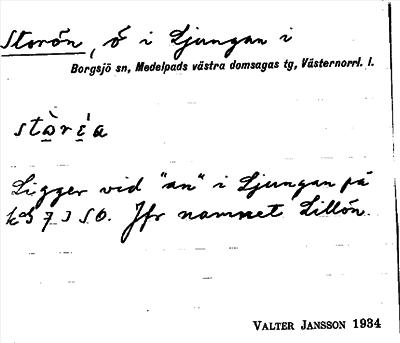 Storön, ö i Ljungan i
Borgsjö sn, Medelpads västra domsagas tg, Västernorrl. l.
stὰrέa
Ligger vid "an" i Ljungan på
kbl 7 3 SO. Jfr namnet Lillön.
VALTER JANSSON 1934